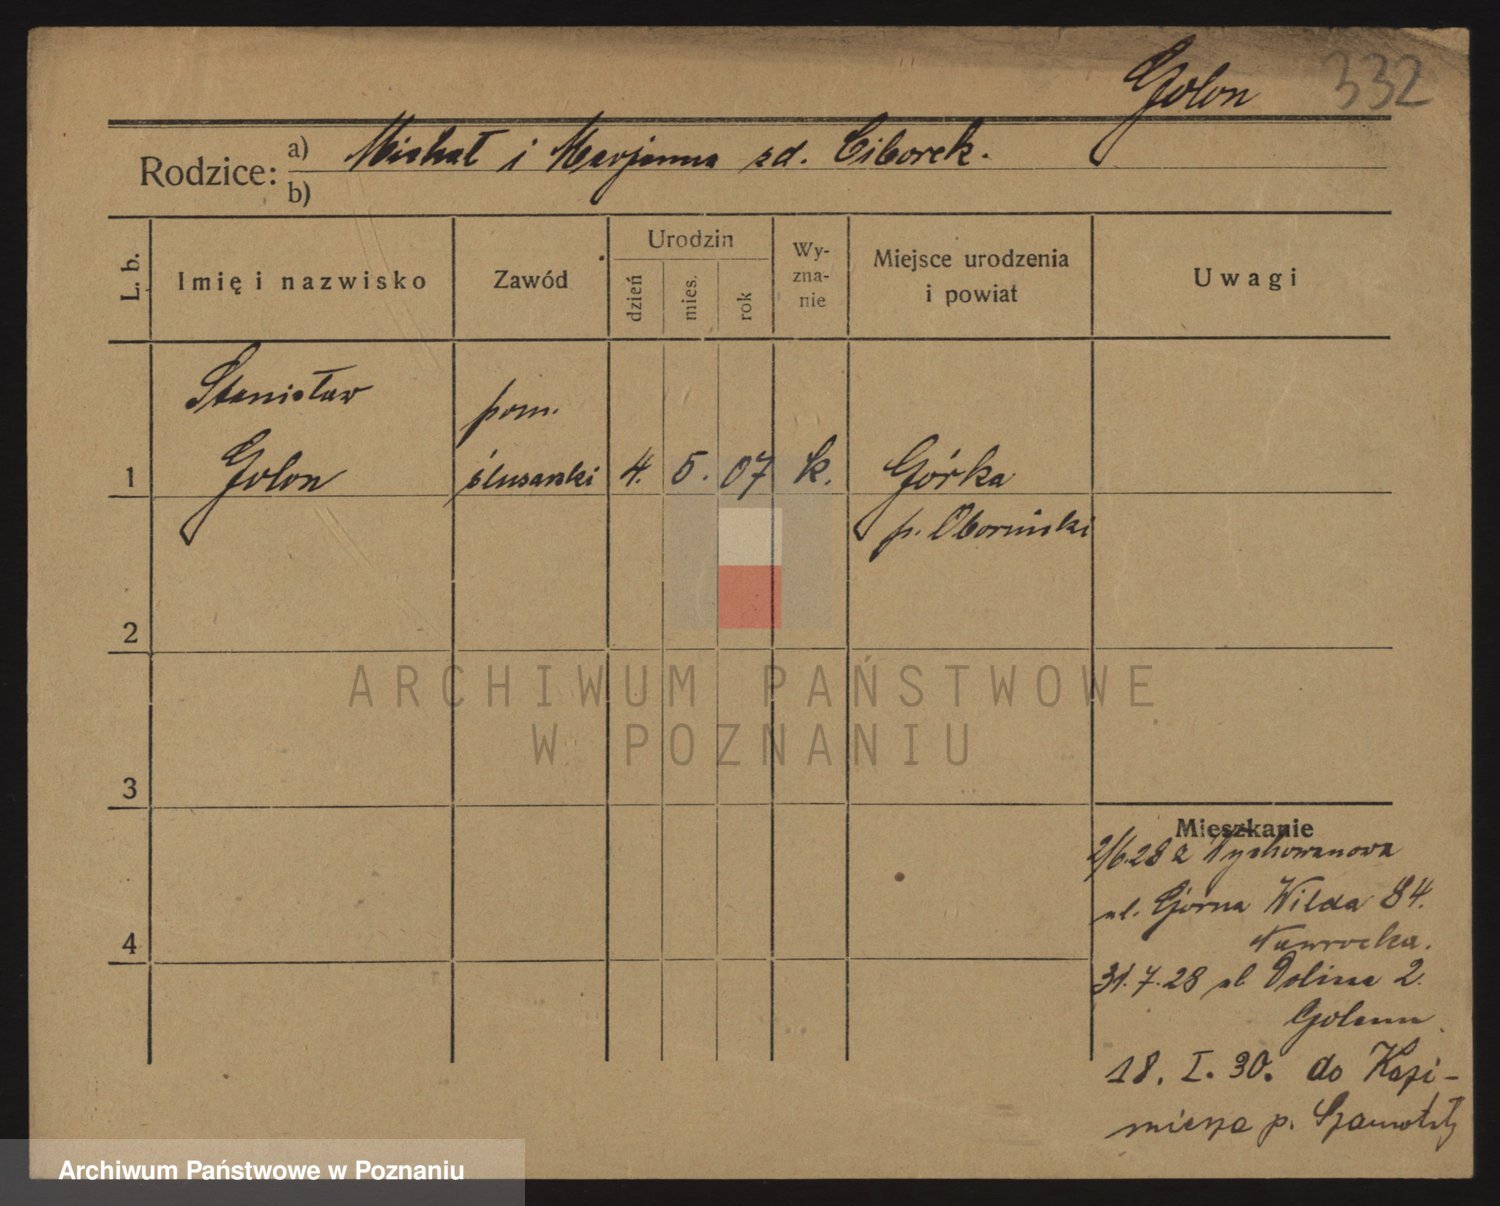 Golon 332
Rodzice: a) Michał i Marjanna zd. Ciborek.
b)
L. b.
Imię i nazwisko
Zawód
Urodzin
dzień
mies.
rok
Wy-
zna-
nie
Miejsce urodzenia
i powiat
Uwagi
Stanisław pom.
1 Golon ślusarski 4. 5. 07 k. Górka
p. Obornicki
2
ARCHIWUM PAŃSTWOWE
W POZNANIU
3
4
Mieszkanie
2/6.28 z
ul. Górna Wilda 84.
Nawrocka.
31.7.28 ul. Dolina 2.
18. I. 30. do Kazi-
mierza p. Szamotuły
Archiwum Państwowe w Poznaniu